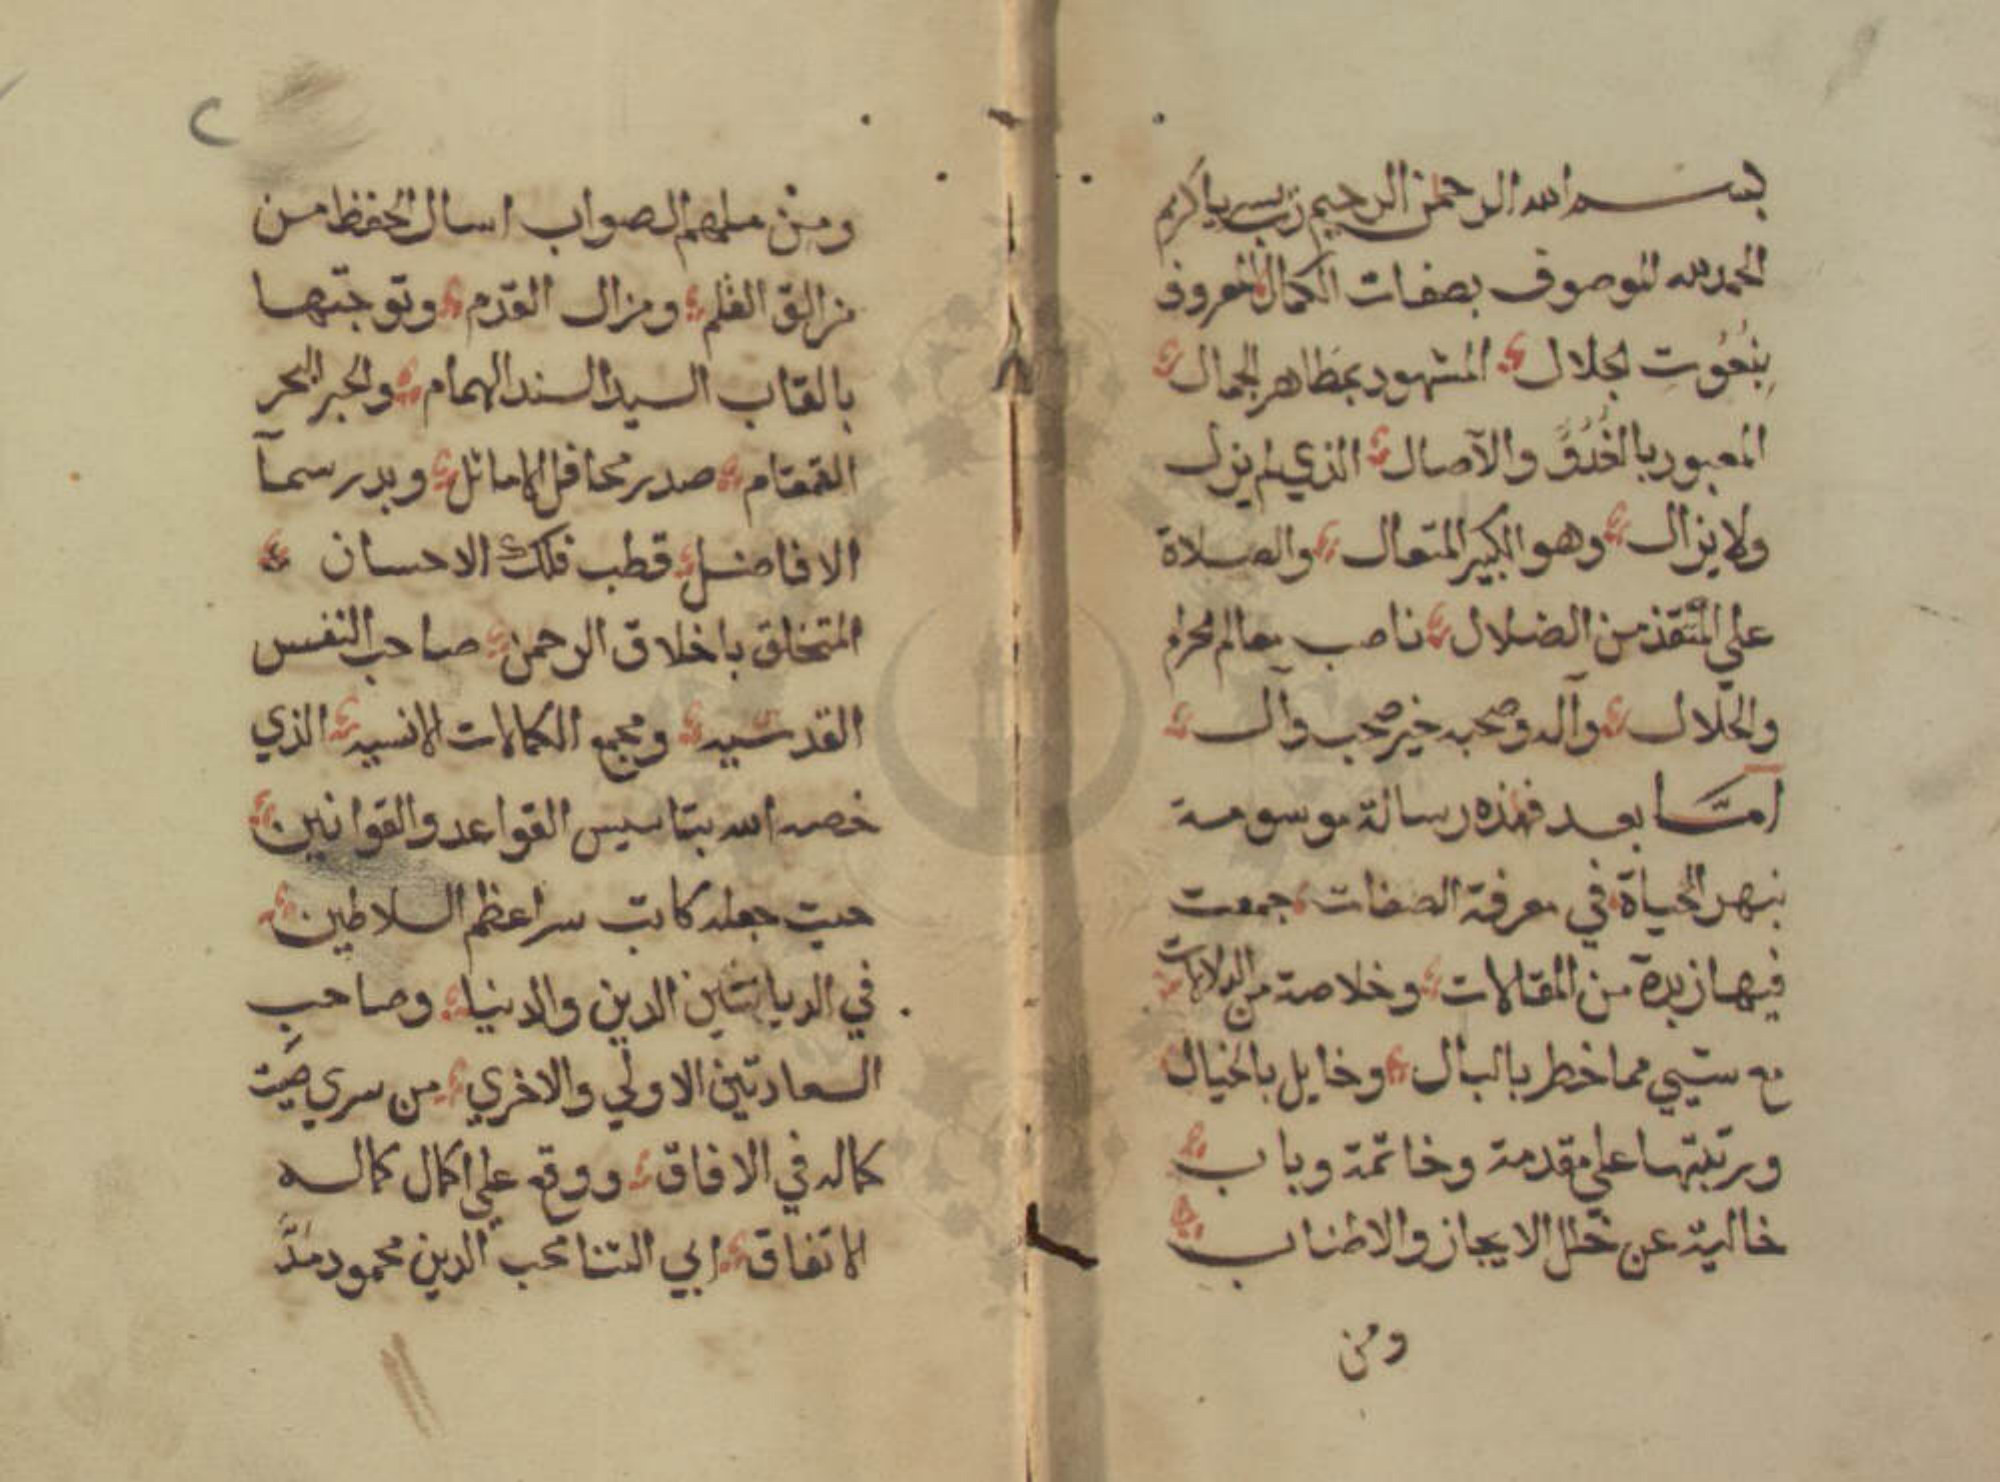 بسم الله الرحمن الرحيم رب يسر يا كريم
الحمد لله الموصوف بصفات الكمال المعروف
بنعوت الجلال المشهود بمظاهر الجمال
المعبود بالغدو والآصال الذي لم يزل
ولا يزال وهو الكبير المتعال والصلاة
على المنقذ من الضلال ناصب معالم الحرام
والحلال وآله وصحبه خير صحب وآل
اما بعد فهذه رسالة موسومة
بنهر الحياة في معرفة الصفات جمعت
فيها زبدة من المقالات وخلاصة من الدلالات
مع شيء مما خطر بالبال وخايل بالخيال
ورتبتها على مقدمة وخاتمة وباب
خالية عن خلل الايجاز والاطناب
ومن
ومن ملهم الصواب اسال الحفظ من
مزالق القلم ومزال القدم وتوجتها
بالقاب السيد السند الهمام والحبر البحر
القمقام صدر محافل الاماثل وبدر سمآ
الافاضل قطب فلك الاحسان
المتخلق باخلاق الرحمن صاحب النفس
القدسيه ومجمع الكمالات الانسيه الذي
خصه الله بتاسيس القواعد والقوانين
حيث جعله كاتب سر اعظم السلاطين
في الدين والدنيا وصاحب
السعادتين الاولي والاخري من سري صيت
كماله في الافاق ووقع علي اكمال كماله
الاتفاق ابي الثنا محب الدين محمود مد